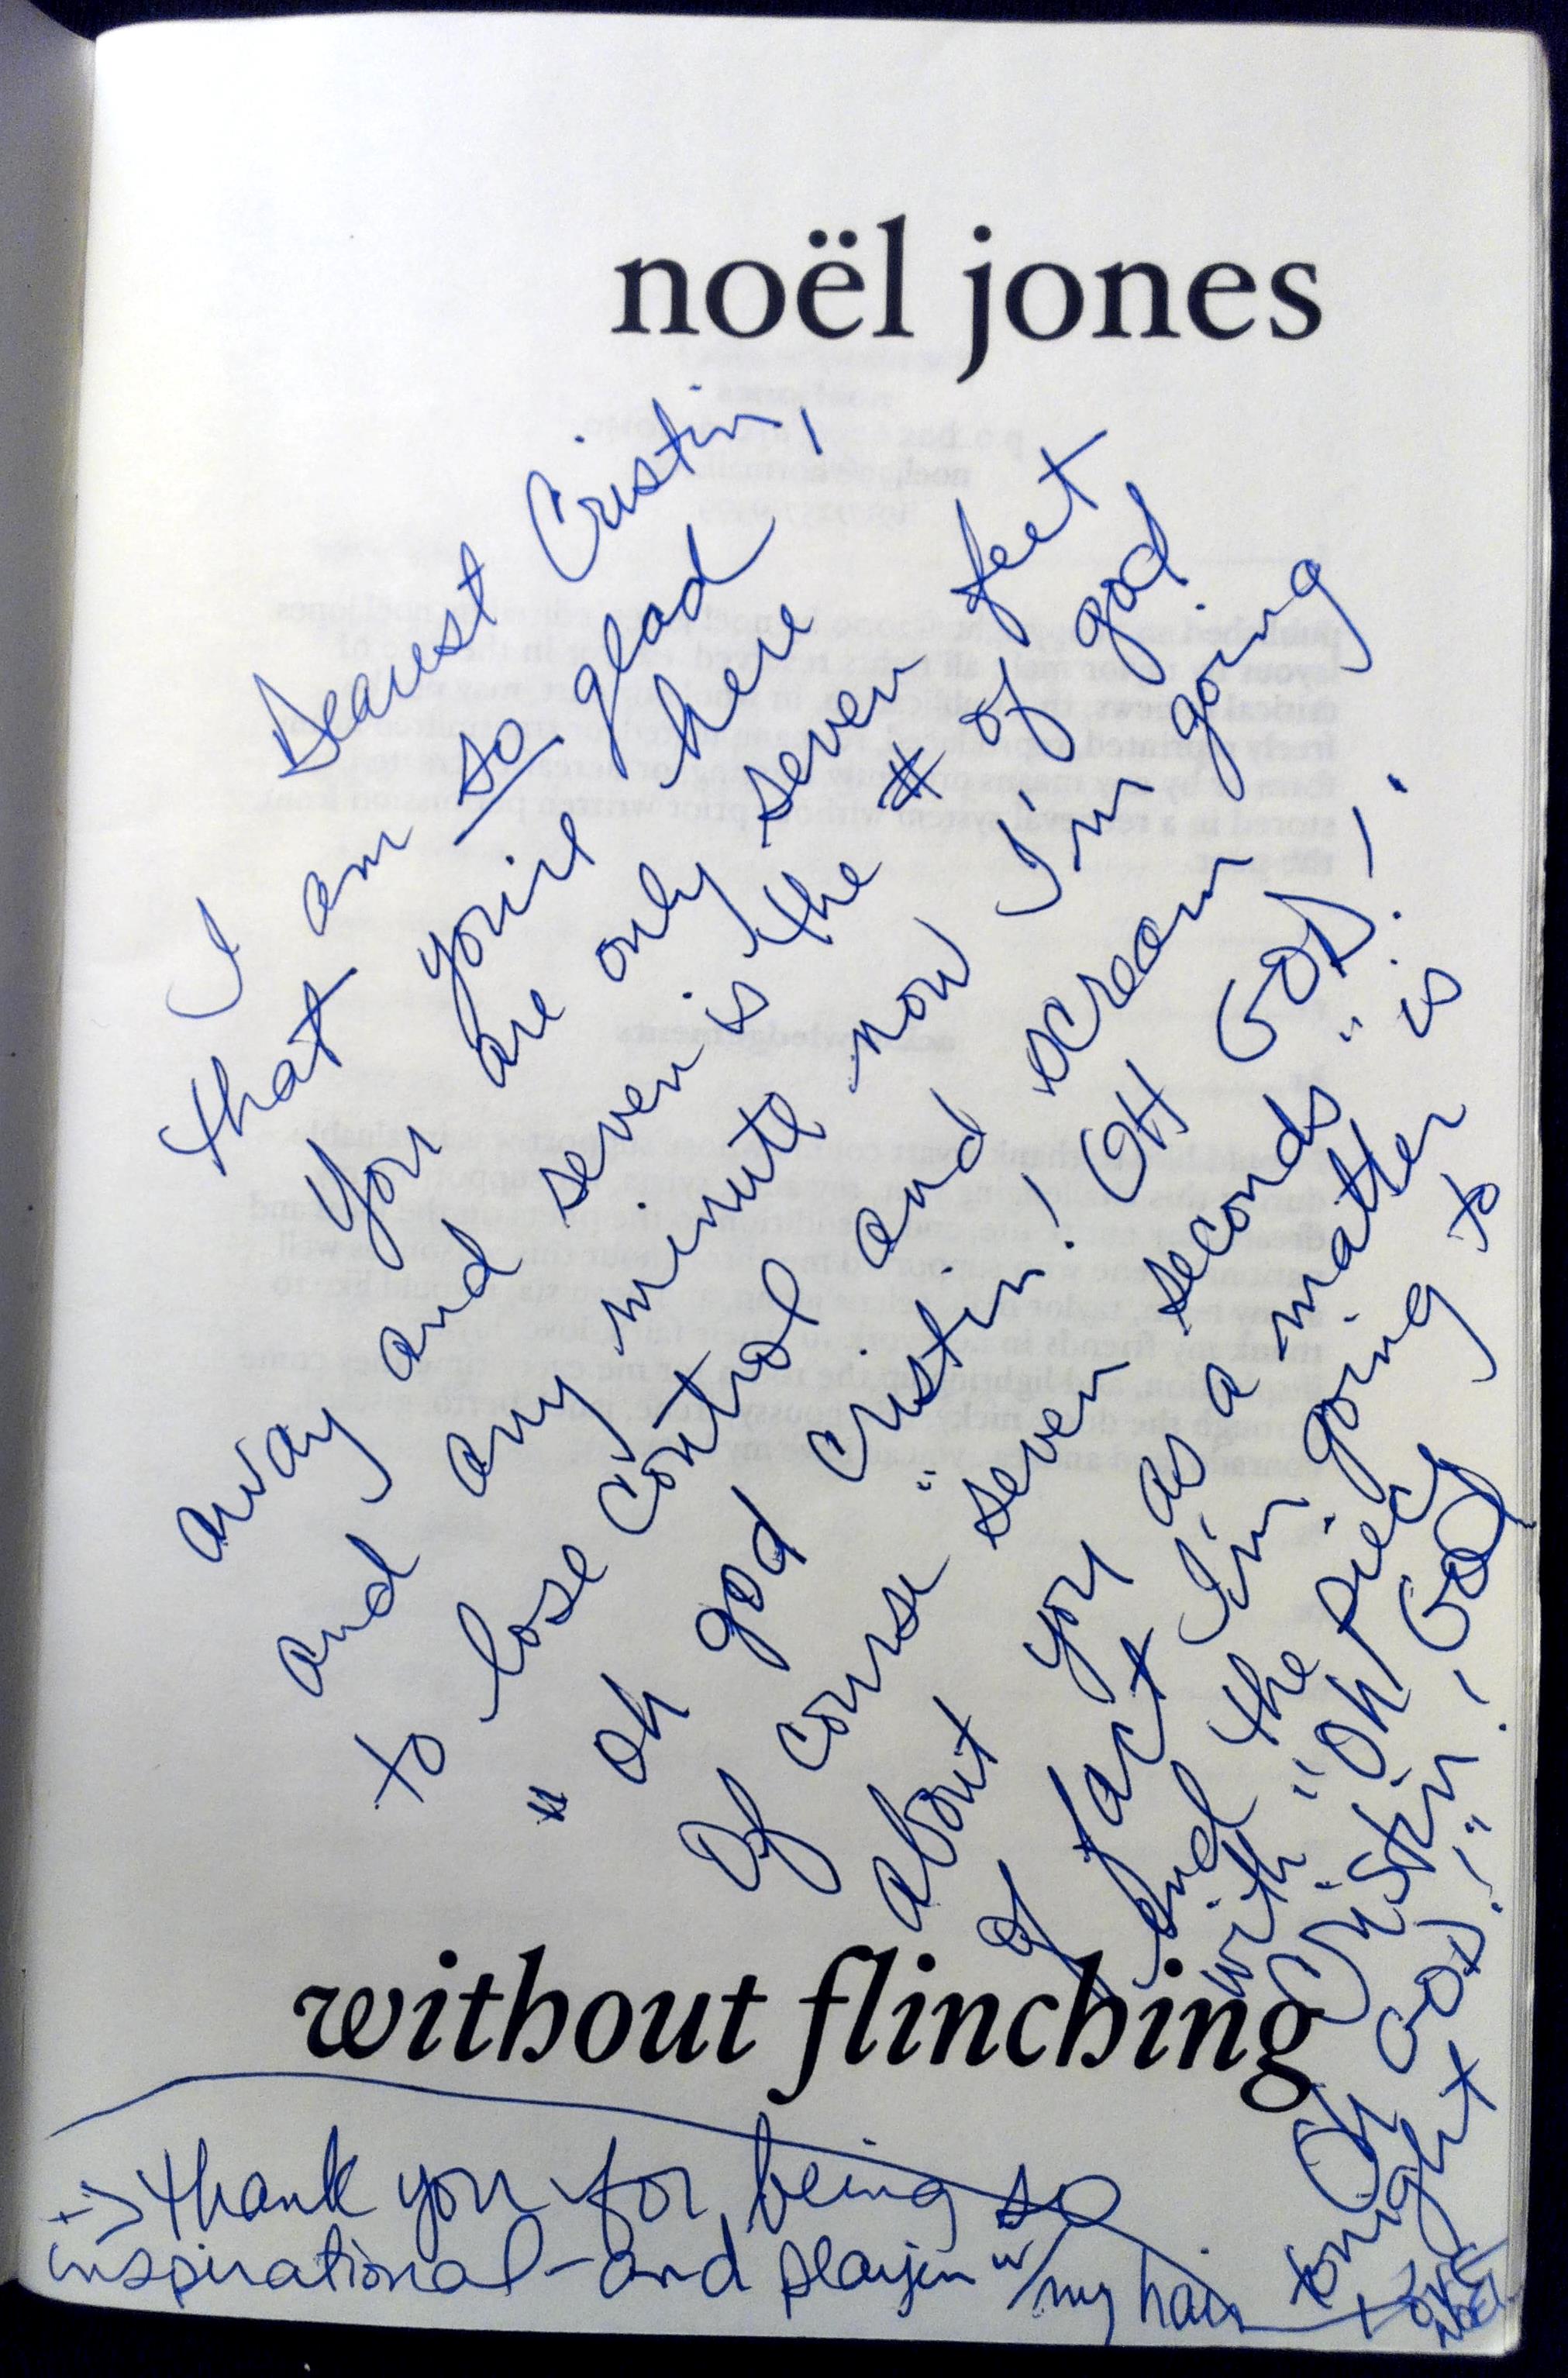 noël jones
Dearest Cristin,
I am so glad
that you're here!
You are only seven feet
away and seven is the # of god
and any minute now I'm going
to lose control and scream
"oh god Cristin! OH GOD!"
Of course seven seconds is
about you as a matter
of fact I'm going to
end the piece
with "Oh God
Cristin! 
Oh GOD!"
tonight
without flinching
thank you for being so
inspirational - and playin w/ my hair
Love
Noël